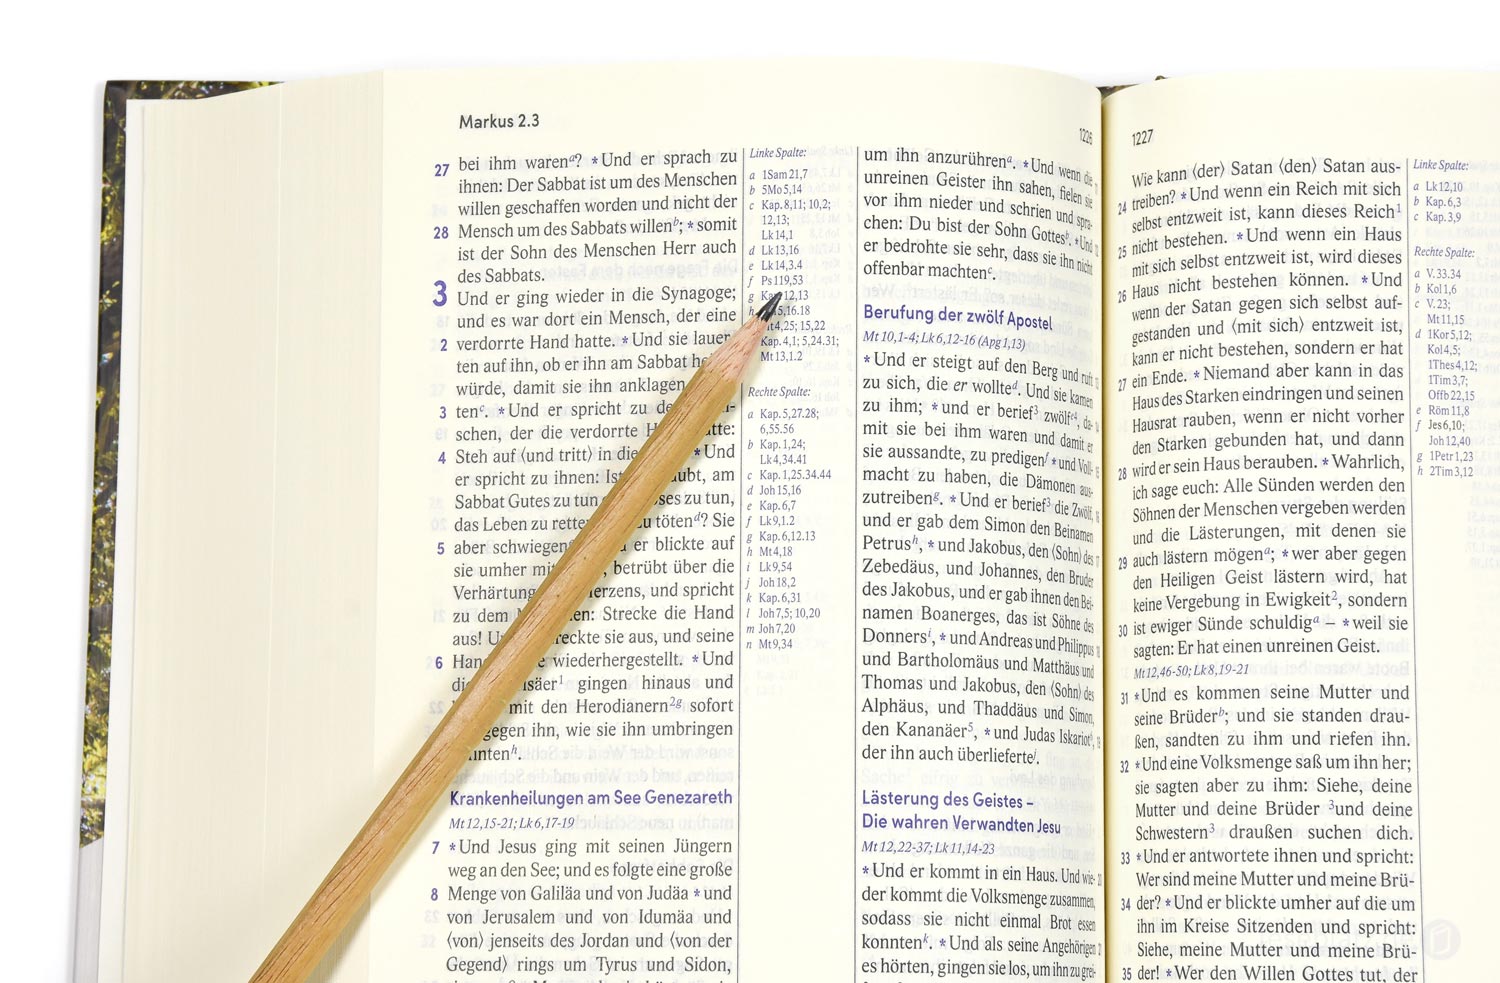 Markus 2.3
27 bei ihm waren a? *Und er sprach zu
ihnen: Der Sabbat ist um des Menschen
willen geschaffen worden und nicht der
28 Mensch um des Sabbats willen b; *somit
ist der Sohn des Menschen Herr auch
des Sabbats.
3 Und er ging wieder in die Synagoge;
und es war dort ein Mensch, der eine
2 verdorrte Hand hatte. *Und sie lauer-
ten auf ihn, ob er ihn am Sabbat
würde, damit sie ihn anklagen
3 ten c. *Und er spricht zu
schen, der die verdorrte
4 Steh auf ⟨und tritt⟩ in die *Und
er spricht zu ihnen: am
Sabbat Gutes zu tun zu tun,
das Leben zu töten d? Sie
5 aber schwiegen er blickte auf
sie umher betrübt über die
Verhärtung und spricht
zu dem Strecke die Hand
aus! sie aus, und seine
6 wiederhergestellt. *Und
gingen hinaus und
mit den Herodianern 2g sofort
gegen ihn, wie sie ihn umbringen
Krankenheilungen am See Genezareth
Mt 12,15-21; Lk 6,17-19
7 *Und Jesus ging mit seinen Jüngern
weg an den See; und es folgte eine große
8 Menge von Galiläa und von Judäa *und
von Jerusalem und von Idumäa und
⟨von⟩ jenseits des Jordan und ⟨von der
Gegend⟩ rings um Tyrus und Sidon,
Linke Spalte:
a 1Sam 21,7
b 5Mo 5,14
c Kap. 8,11; 10,2;
12,13;
Lk 14,1
d Lk 13,16
e Lk 14,3.4
f Ps 119,53
g 12,13
h 5,16.18
4,25; 15,22
Kap. 4,1; 5,24.31;
Mt 13,1.2
Rechte Spalte:
a Kap. 5,27.28;
6,55.56
b Kap. 1,24;
Lk 4,34.41
c Kap. 1,25.34.44
d Joh 15,16
e Kap. 6,7
f Lk 9,1.2
g Kap. 6,12.13
h Mt 4,18
i Lk 9,54
j Joh 18,2
k Kap. 6,31
l Joh 7,5; 10,20
m Joh 7,20
n Mt 9,34
1226
um ihn anzurühren a. *Und wenn die
unreinen Geister ihn sahen, fielen sie
vor ihm nieder und schrien und spra-
chen: Du bist der Sohn Gottes b. *Und
er bedrohte sie sehr, dass sie ihn nicht
offenbar machten c.
Berufung der zwölf Apostel
Mt 10,1-4; Lk 6,12-16 (Apg 1,13)
*Und er steigt auf den Berg und ruft
zu sich, die er wollte d. Und sie kamen
zu ihm; *und er berief 3 zwölf e4, da-
mit sie bei ihm waren und damit er
sie aussandte, zu predigen f *und Voll-
macht zu haben, die Dämonen aus-
zutreiben g. *Und er berief 3 die Zwölf,
und er gab dem Simon den Beinamen
Petrus h, *und Jakobus, den ⟨Sohn⟩ des
Zebedäus, und Johannes, den Bruder
des Jakobus, und er gab ihnen den Bei-
namen Boanerges, das ist Söhne des
Donners i, *und Andreas und Philippus
und Bartholomäus und Matthäus und
Thomas und Jakobus, den ⟨Sohn⟩ des
Alphäus, und Thaddäus und Simon,
den Kananäer 5, *und Judas Iskariot 6,
der ihn auch überlieferte j.
Lästerung des Geistes –
Die wahren Verwandten Jesu
Mt 12,22-37; Lk 11,14-23
*Und er kommt in ein Haus. Und wie-
der kommt die Volksmenge zusammen,
sodass sie nicht einmal Brot essen
konnten k. *Und als seine Angehörigen
es hörten, gingen sie los, um ihn zu grei-
1227
Wie kann ⟨der⟩ Satan ⟨den⟩ Satan aus-
24 treiben? *Und wenn ein Reich mit sich
selbst entzweit ist, kann dieses Reich 1
25 nicht bestehen. *Und wenn ein Haus
mit sich selbst entzweit ist, wird dieses
26 Haus nicht bestehen können. *Und
wenn der Satan gegen sich selbst auf-
gestanden und ⟨mit sich⟩ entzweit ist,
kann er nicht bestehen, sondern er hat
27 ein Ende. *Niemand aber kann in das
Haus des Starken eindringen und seinen
Hausrat rauben, wenn er nicht vorher
den Starken gebunden hat, und dann
28 wird er sein Haus berauben. *Wahrlich,
ich sage euch: Alle Sünden werden den
Söhnen der Menschen vergeben werden
und die Lästerungen, mit denen sie
29 auch lästern mögen a; *wer aber gegen
den Heiligen Geist lästern wird, hat
keine Vergebung in Ewigkeit 2, sondern
30 ist ewiger Sünde schuldig a – *weil sie
sagten: Er hat einen unreinen Geist.
Mt 12,46-50; Lk 8,19-21
31 *Und es kommen seine Mutter und
seine Brüder b; und sie standen drau-
ßen, sandten zu ihm und riefen ihn.
32 *Und eine Volksmenge saß um ihn her;
sie sagten aber zu ihm: Siehe, deine
Mutter und deine Brüder 3und deine
Schwestern 3 draußen suchen dich.
33 *Und er antwortete ihnen und spricht:
Wer sind meine Mutter und meine Brü-
34 der? *Und er blickte umher auf die um
ihn im Kreise Sitzenden und spricht:
Siehe, meine Mutter und meine Brü-
35 der! *Wer den Willen Gottes tut, der
Linke Spalte:
a Lk 12,10
b Kap. 6,3
c Kap. 3,9
Rechte Spalte:
a V. 33.34
b Kol 1,6
c V. 23;
Mt 11,15
d 1Kor 5,12;
Kol 4,5;
1Thes 4,12;
1Tim 3,7;
Offb 22,15
e Röm 11,8
f Jes 6,10;
Joh 12,40
g 1Petr 1,23
h 2Tim 3,12